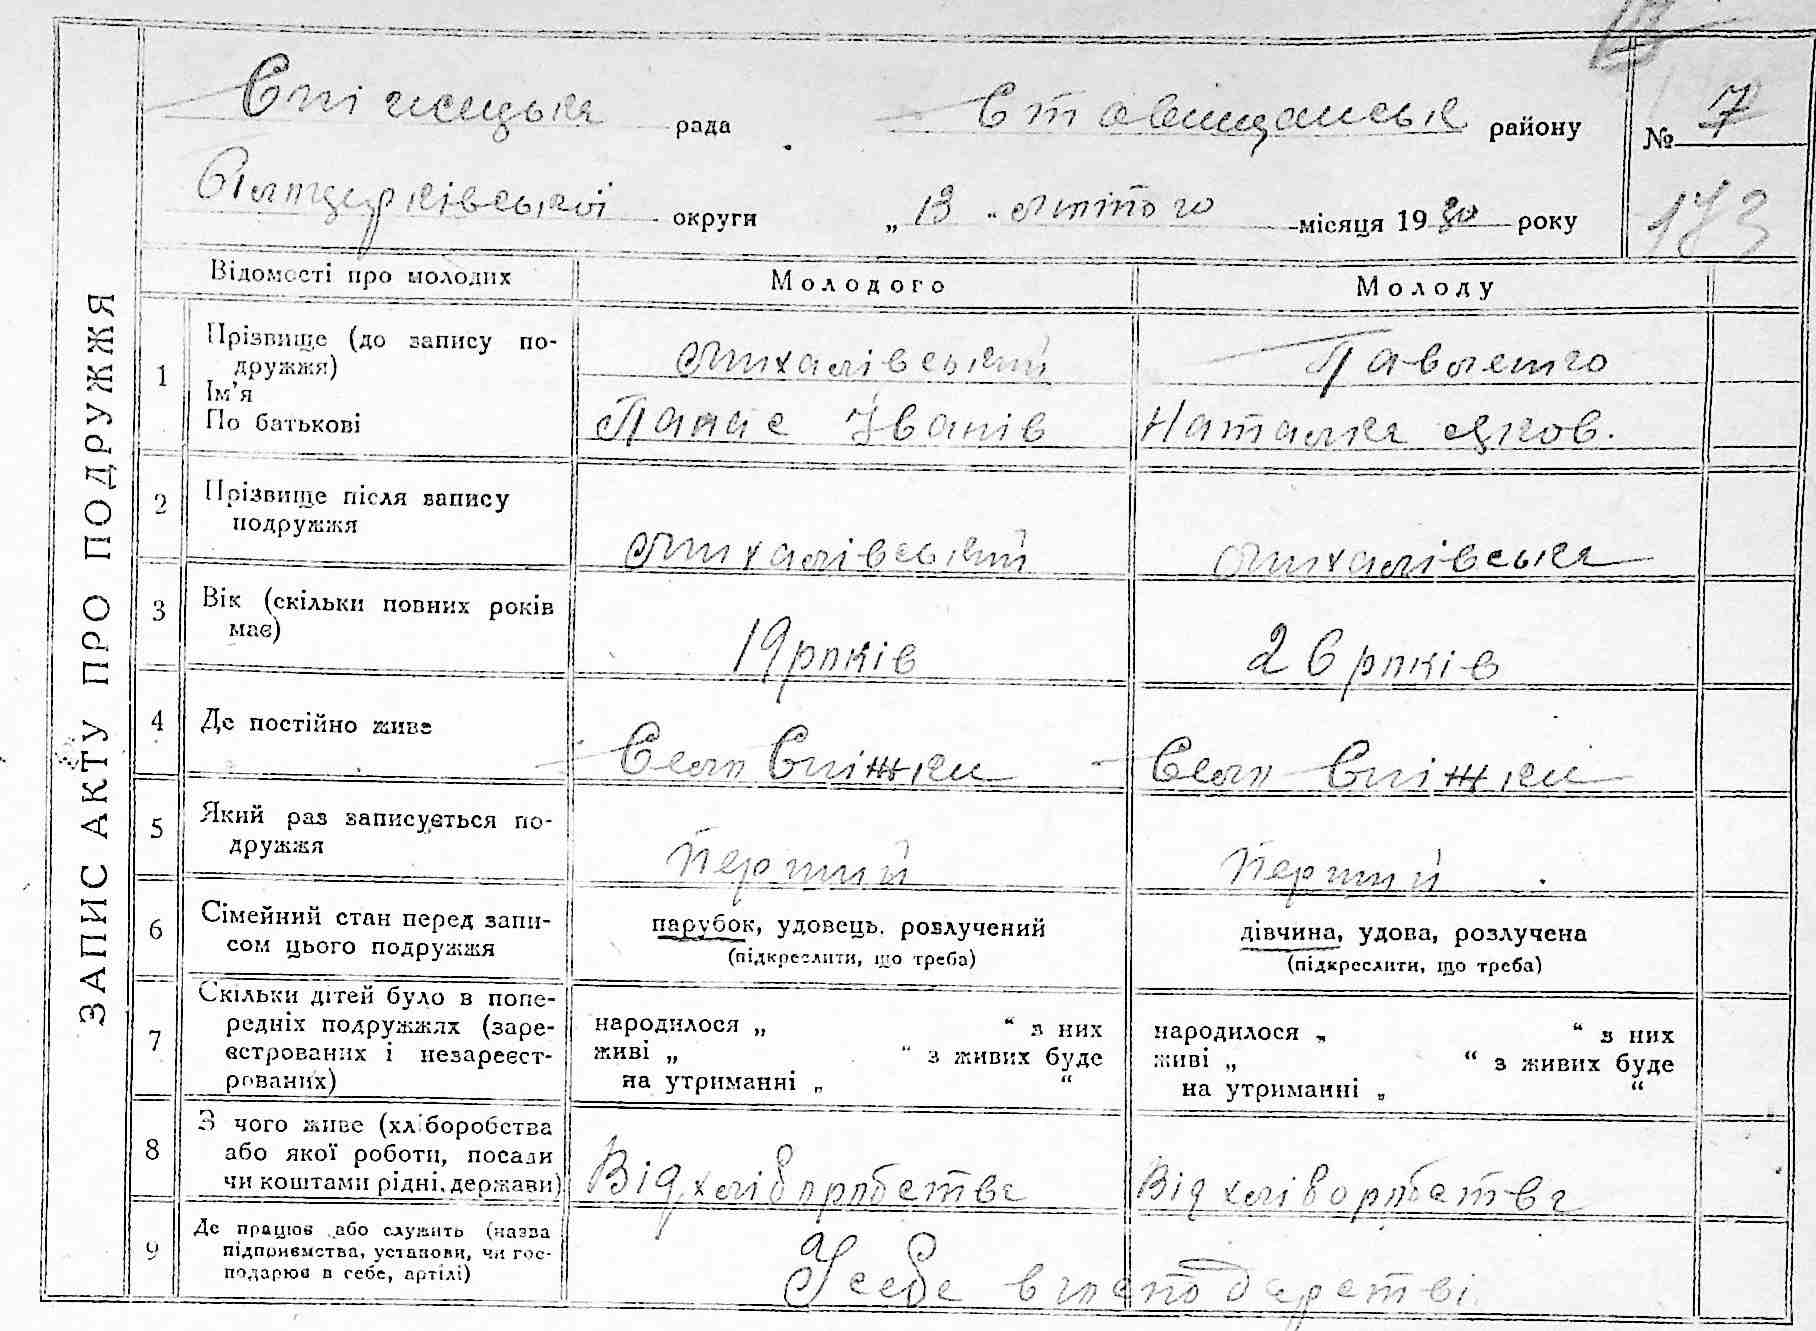 ЗАПИС АКТУ ПРО ПОДРУЖЖЯ
Спіжецька рада Ставищанськ району № 7
Білтцерківської округи „13“ лютого місяця 1930 року 173
Відомості про молодих Молодого Молоду
1 Прізвище (до запису по-
дружжя)
Ім'я
По батькові
Михалівський Павленко
Панас Іванів Наталка Яков.
2 Прізвище після запису
подружжя
Михалівський Михалівська
3 Вік (скільки повних років
має)
19 років 26 років
4 Де постійно живе
Село Спіжки Село Спіжки
5 Який раз записується по-
дружжя
Перший Перший
6 Сімейний стан перед запи-
сом цього подружжя
парубок, удовець, розлучений дівчина, удова, розлучена
(підкреслити, що треба) (підкреслити, що треба)
7 Скільки дітей було в попе-
редніх подружжях (заре-
єстрованих і незареєст-
рованих)
народилося „ “ з них народилося „ “ з них
живі „ “ з живих буде живі „ “ з живих буде
на утриманні „ “ на утриманні „ “
8 З чого живе (хліборобства
або якої роботи, посади
чи коштами рідні, держави)
Від хліборобства Від хліборобства
9 Де працює або служить (назва
підприємства, установи, чи гос-
подарює в себе, артілі)
У себе в господарстві